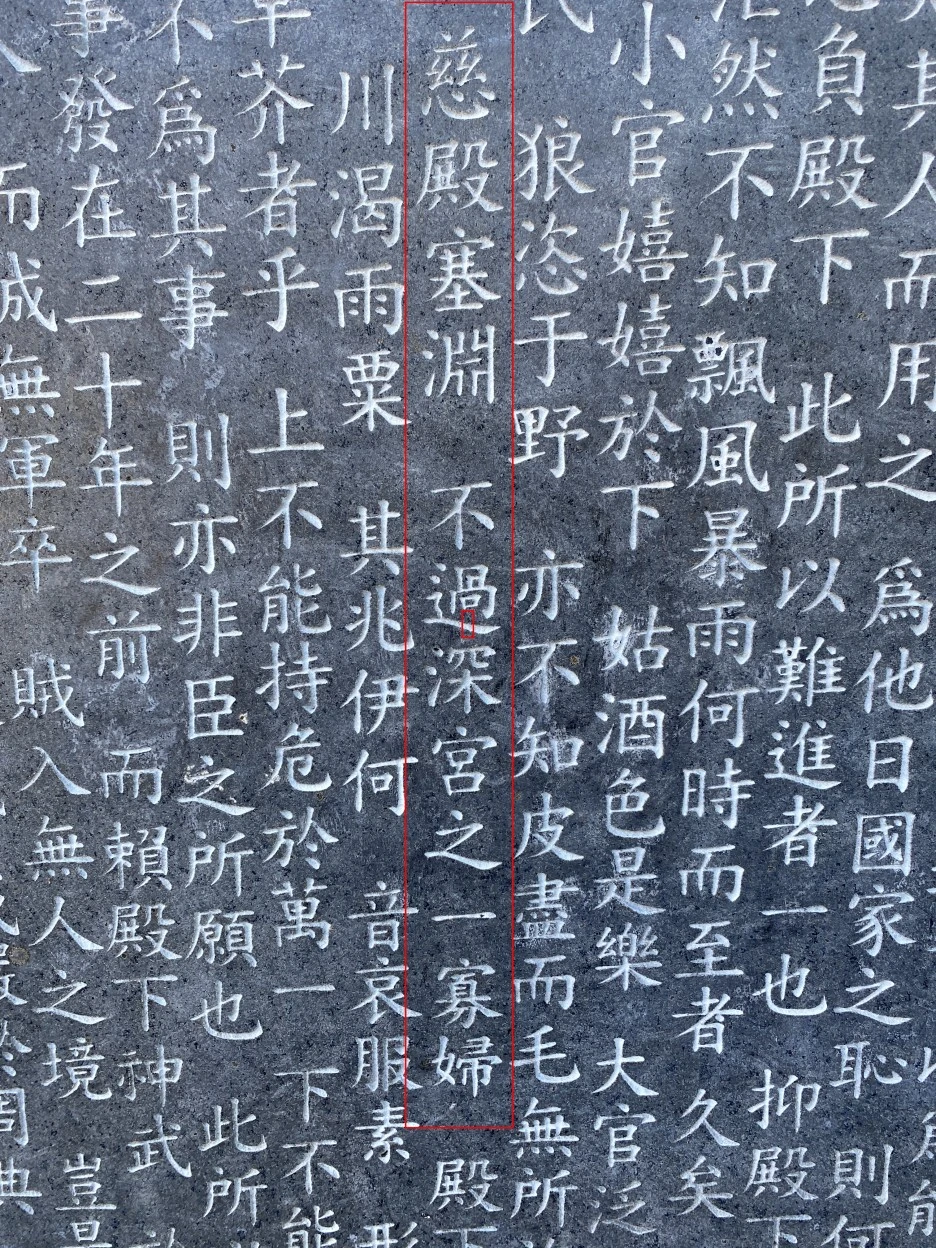 爲能
其人而用之 爲他日國家之恥 則何
負殿下 此所以難進者一也 抑殿下
茫然不知 飄風暴雨何時而至者 久矣
小官嬉嬉於下 姑酒色是樂 大官泛
民 狼恣于野 亦不知皮盡而毛無所
慈殿塞淵 不過深宮之一寡婦 殿下
川渴雨粟 其兆伊何 音哀服素 形
草芥者乎 上不能持危於萬一 下不能
不爲其事 則亦非臣之所願也 此所
事發在二十年之前 而賴殿下神武 於
人 而城無軍卒 賊入無人之境 豈是
於周典